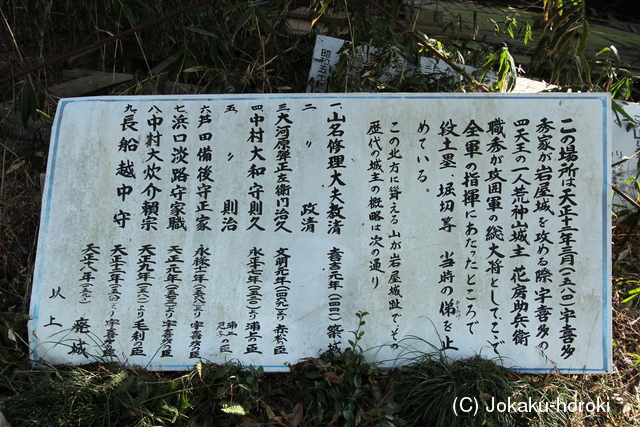 この場所は天正十二年三月(一五八四)宇喜多
秀家が岩屋城を攻める際、宇喜多の
四天王の一人荒神山城主 花房助兵衛
職秀が攻囲軍の総大将としてここで
全軍の指揮にあたったところで
土塁、堀切等 当時の俤を止
めている。
この北方に聳える山が岩屋城址でその
歴代の城主の概略は次の通り
一、山名修理大夫教清 嘉吉元年(一四四一)築
二、〃 政清
三、大河原弾正左衛門治久 文明元年(一四六九)赤松の臣
四、中村大和守則久 永正十七年(一五二〇)浦上の臣
五、〃 則治
六、芦田備後守正家 永禄十一年(一五六八)宇喜多の臣
七、浜口淡路守家職 天正元年(一五七三)宇喜多の臣
八、中村大炊介頼宗 天正九年(一五八一)毛利の臣
九、長船越中守 天正十二年(一五八四)宇喜多の臣
天正十八年(一五九〇)廃城
以上
(C) Jokaku-hdroki